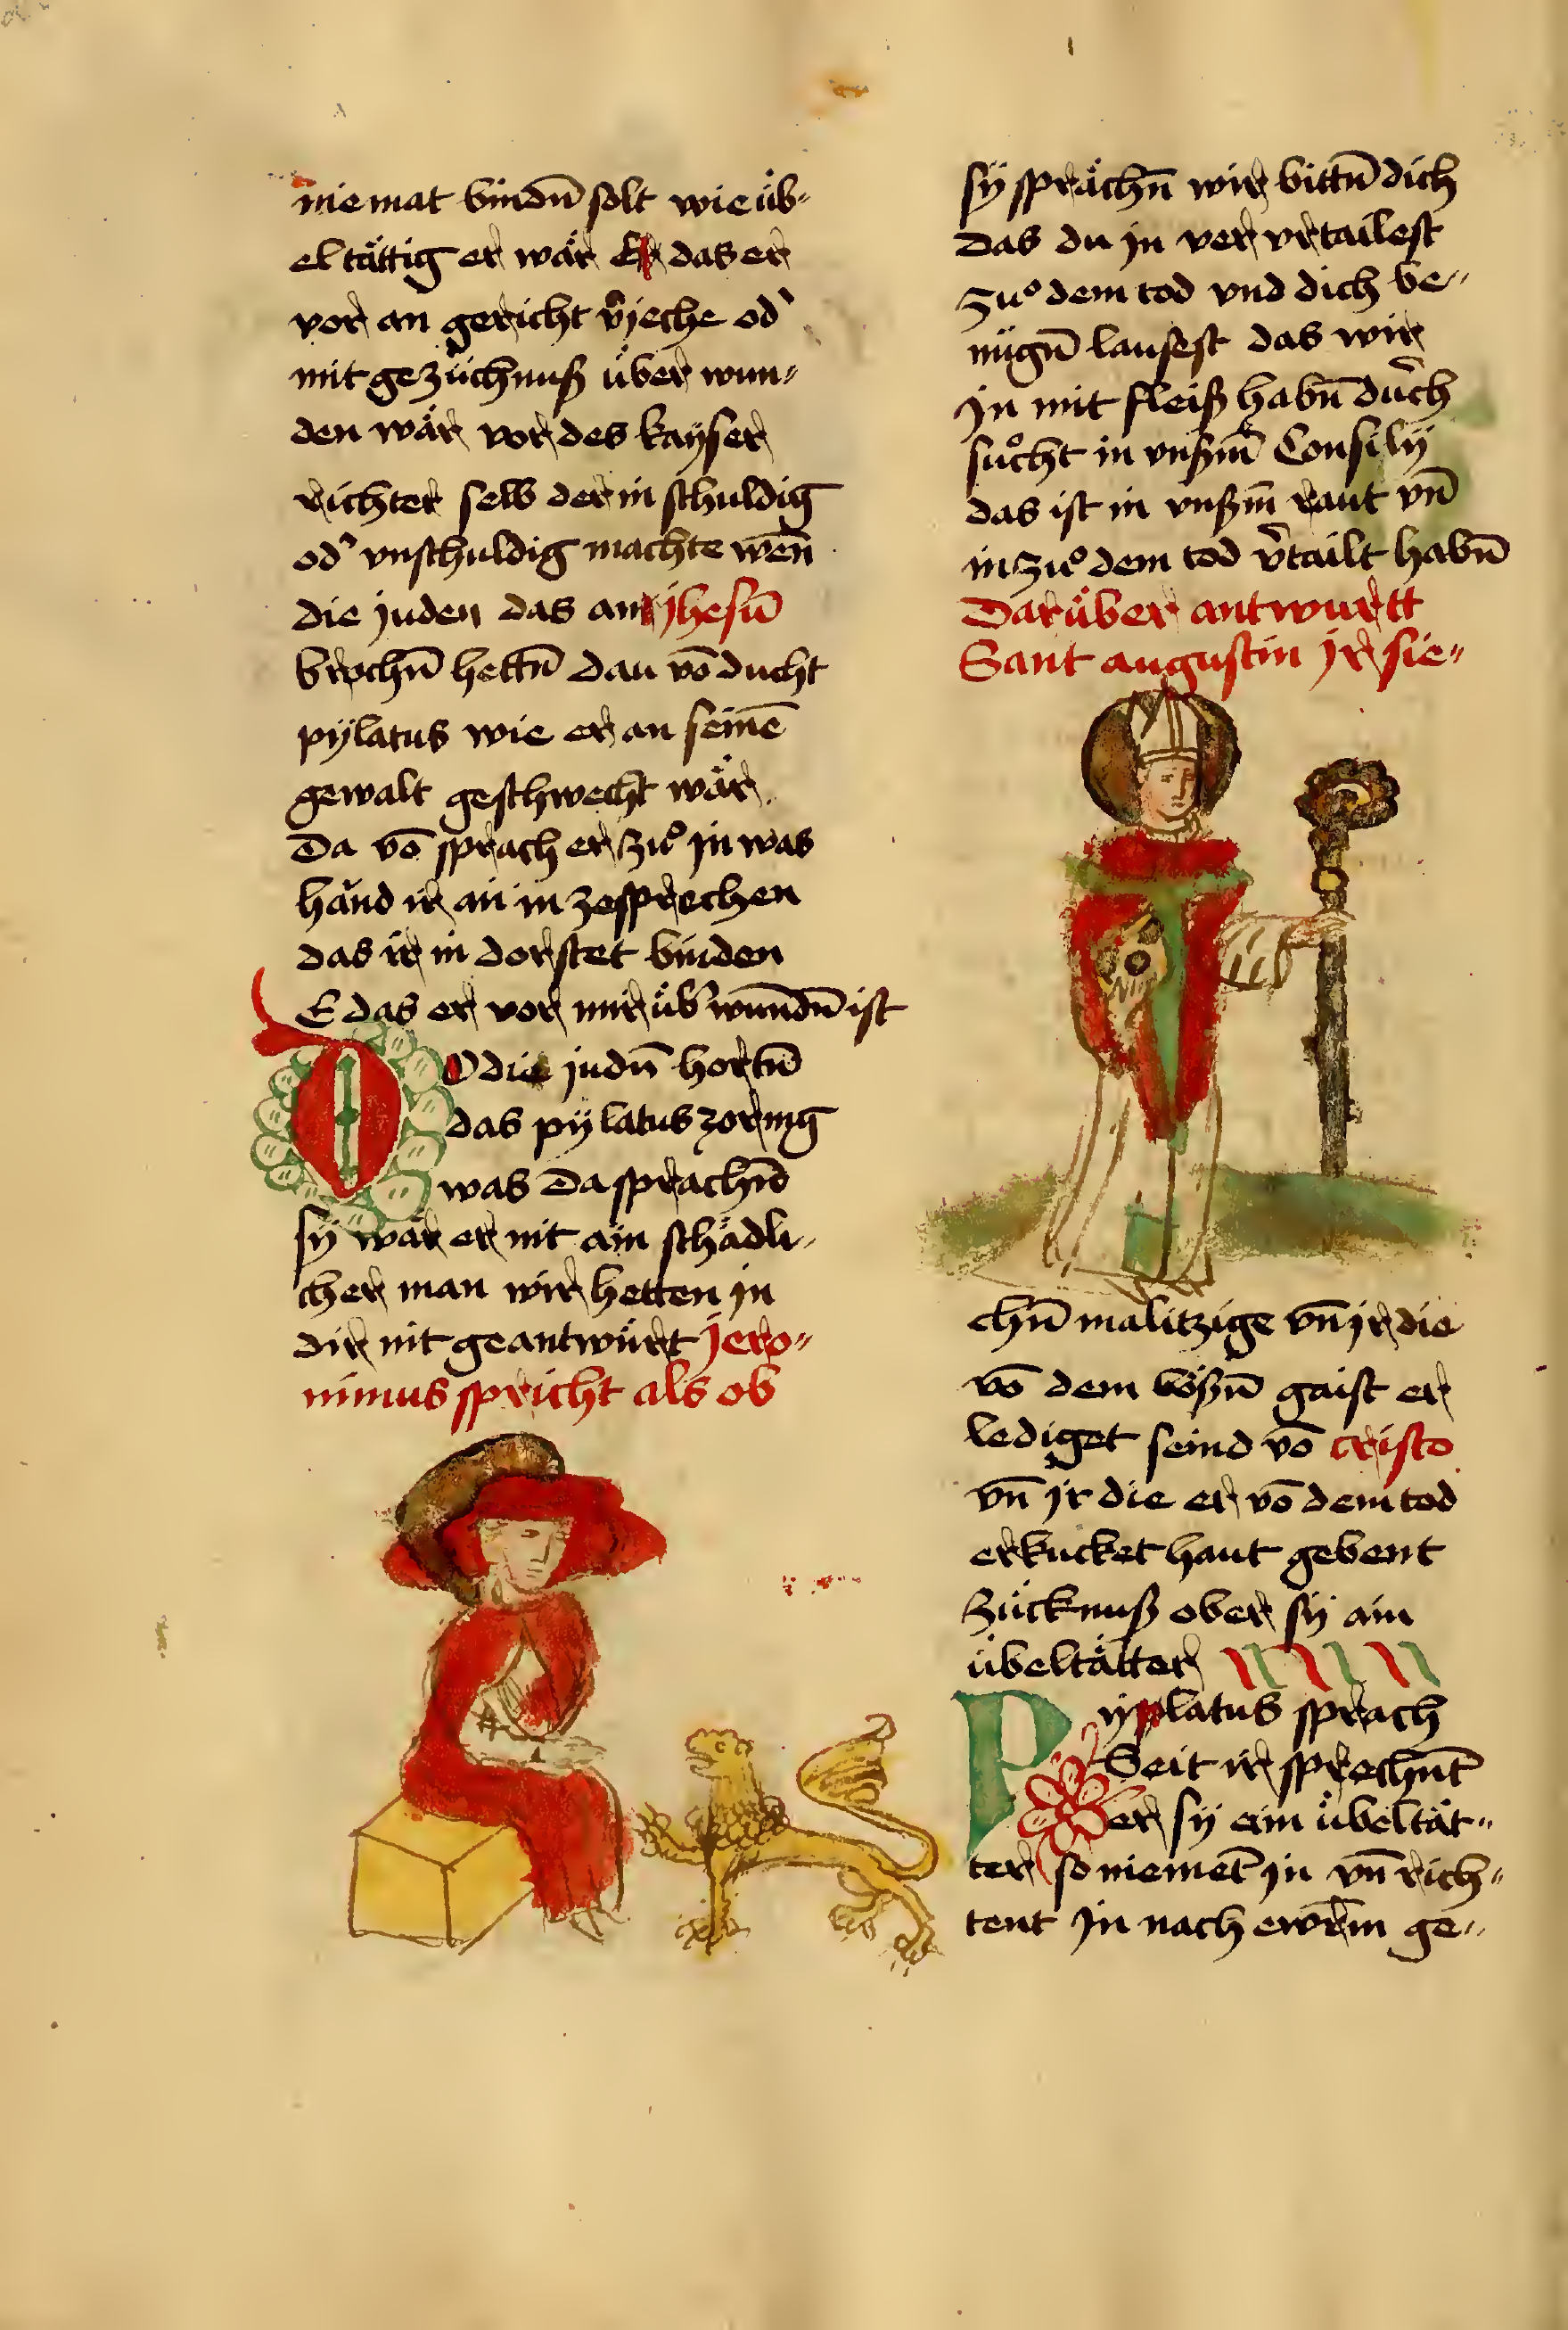 niemat bindn̄ solt wie üb-
el tättig er wär E das er
vor an gericht v̄jeche od'
mit gezüchnuß über wun-
den wär vor des kaÿser
richter selb der in schuldig
od' vnschuldig machte wen̄
die juden das am jhesū
brochn̄ hettn̄ dau vō ducht
pÿlatus wie er an seinē
gewalt geschwecht wär
Da vō sprach er zuͦ jn was
händ ir an in zesprechen
das ir in dorstet binden
E das er vor mir üb' wundn̄ ist
DO die judn̄ hortn̄
das pÿlatus zornig
was Da sprachn̄d
sÿ wär er nit ain schädli-
cher man wir hetten in
dir nit geantwürt jero-
nimus spricht als ob
sÿ sprächn̄ wir bittn̄ dich
das du jn ver vrtailest
zuͦ dem tod vnd dich be-
nügn̄ lausest das wir
jn mit fleiß habn̄ dur̄ch
suͦcht in vnßm̄ Consilÿ
das ist in vnßm̄ raut vn̄
in zuͦ dem tod v̄tailt habn̄
Darüber antwurtt
Sant augustin jr sie-
chn̄ malitzige vn̄ jr die
vō dem bößn̄ gaist er
lediget seind vō cristo
vn̄ jr die er vō dem tod
erkucket haut gebent
zücknuß ober sÿ ain
übeltätter
Pÿlatus sprach
Seit ir sprechnt̄
er sÿ ein übeltät-
ter so niemet̄ jn vn̄ rich-
tent jn nach ewr̄m ge-